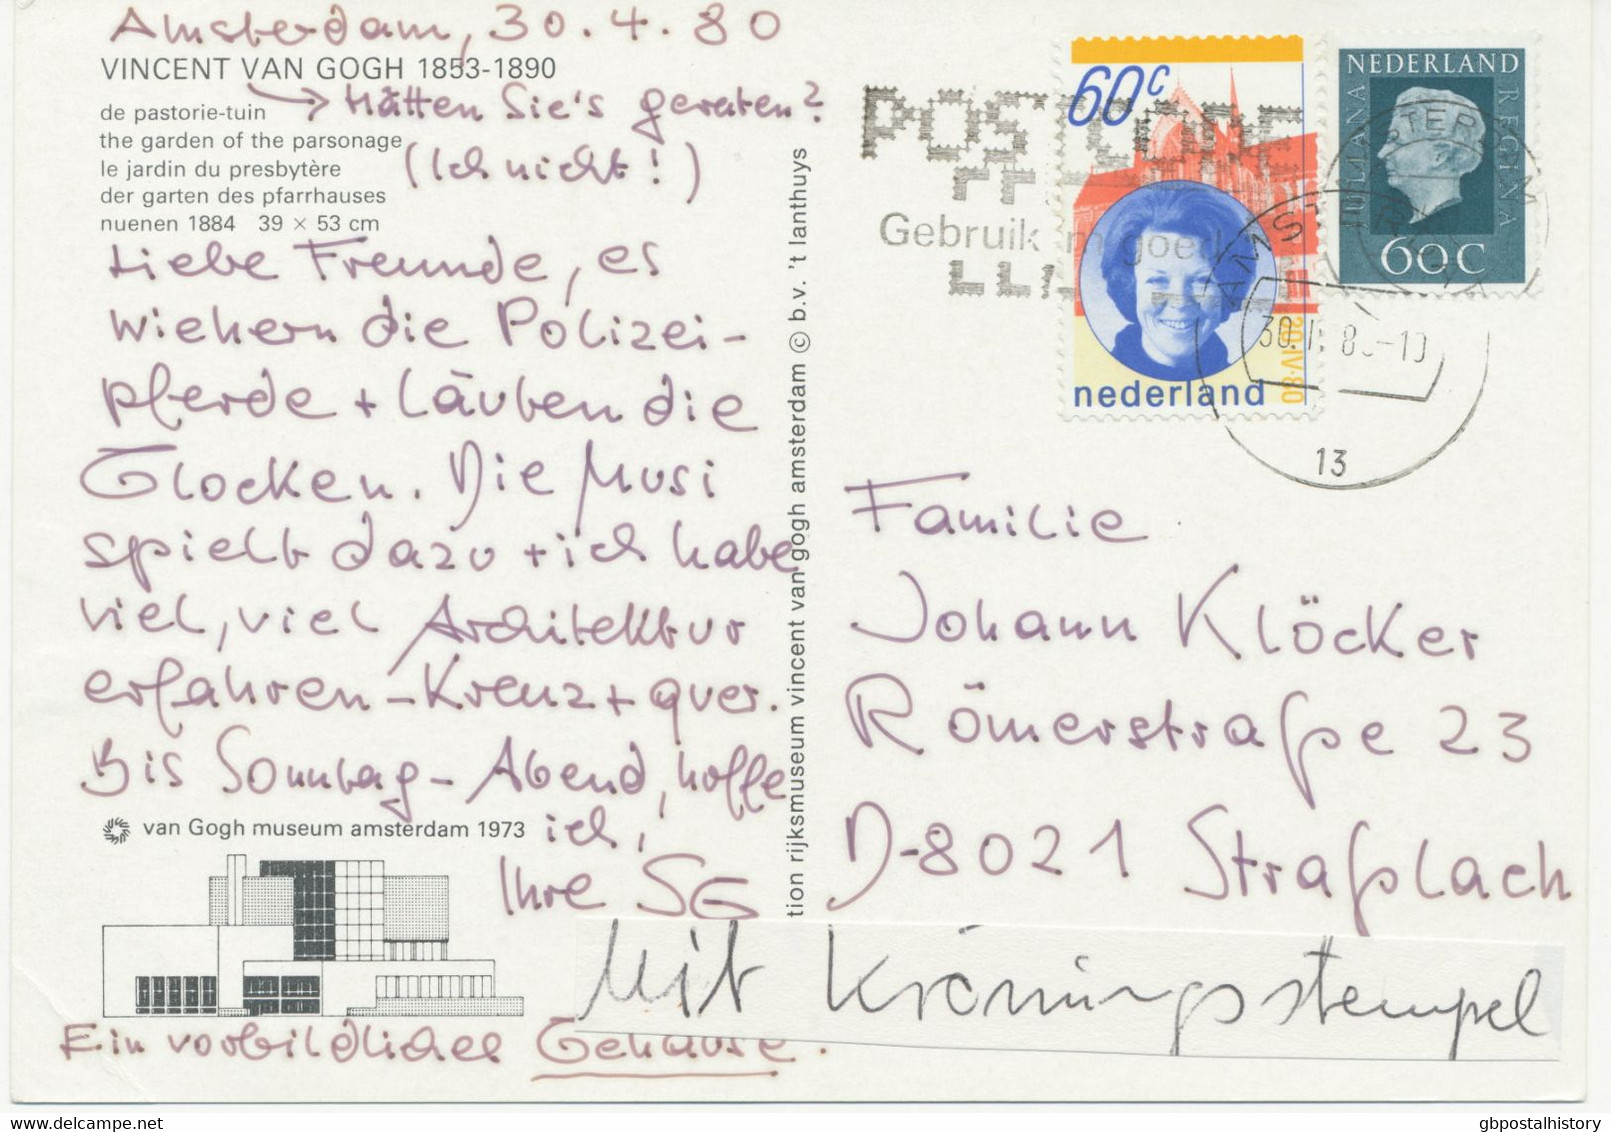 Amsterdam, 30.4.80
VINCENT VAN GOGH 1853-1890
→ Hätten Sie's geraten?
(Ich nicht!)
de pastorie-tuin
the garden of the parsonage
le jardin du presbytère
der garten des pfarrhauses
nuenen 1884 39 × 53 cm
Liebe Freunde, es
wiehern die Polizei-
pferde + läuten die
Glocken. Die Musi
spielt dazu + ich habe
viel, viel Architektur
erfahren - Kreuz + quer.
Bis Sonntag - Abend, hoffe
ich,
Ihre SG
van Gogh museum amsterdam 1973
Ein vorbildliches Gehäuse.
tion rijksmuseum vincent van gogh amsterdam © b.v. 't lanthuys
POSTCODE
Gebruik m goed
60c
nederland
30·IV·80
NEDERLAND
JULIANA REGINA
60C
AMSTERDAM
30.IV 80-10
13
Familie
Johann Klöcker
Römerstraße 23
D-8021 Straßlach
Mit Krönungsstempel
gbpostalhistory